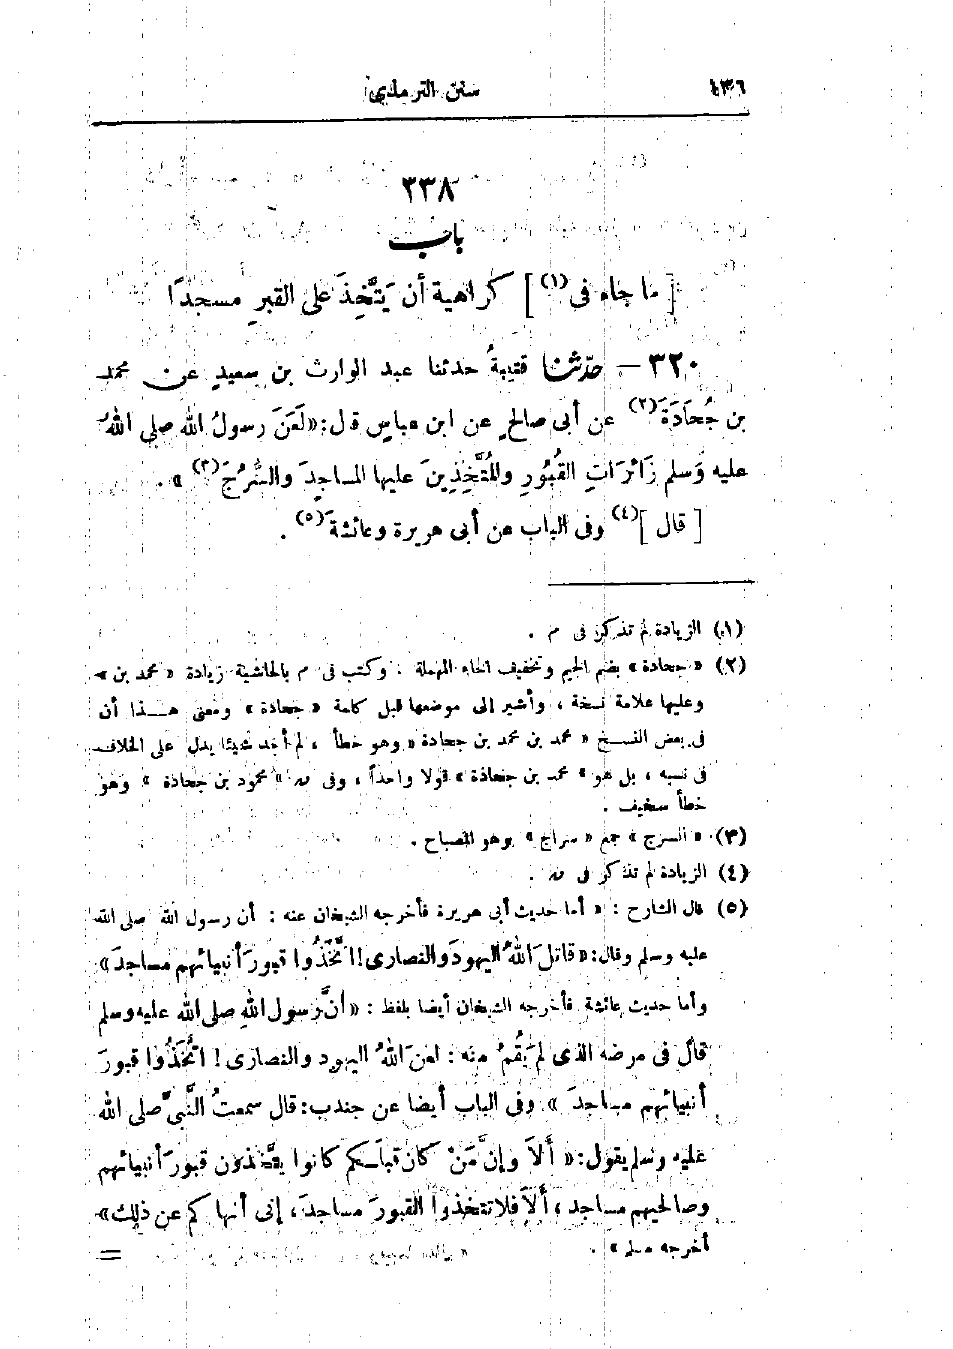 ١٣٦ سنن الترمذي
٢٣٨
باب
[ ما جاء فى (١) ] كراهية أن يَتَّخِذَ على القبرِ مسجدًا
٣٢٠ — حدّثنا قتيبةُ حدثنا عبد الوارث بن سعيدٍ عن محمد
بن جُحَادَةَ (٢) عن أبى صالحٍ عن ابن عباسٍ قال: «لَعَنَ رسولُ الله صلى اللهُ
عليه وَسلم زَائرَاتِ القُبُورِ والمُتَّخِذِينَ عليها المساجِدَ والسُّرُجَ (٣) » .
[ قال ] (٤) وفى الباب عن أبى هريرة وعائشةَ (٥) .
(١) الزيادة لم تذكر فى م .
(٢) « جحادة » بضم الجيم وتخفيف الحاء المهملة . وكتب فى م بالحاشية زيادة « محمد بن »
وعليها علامة نسخة ، وأشير إلى موضعها قبل كلمة « جحادة » ومعنى هـذا أن
فى بعض النسخ « محمد بن محمد بن جحادة » وهو خطأ ، لم أجد شيئا يدل على الخلاف
فى نسبه ، بل هو « محمد بن جحادة » قولا واحداً ، وفى « محمود بن جحادة » وهو
خطأ سخيف .
(٣) « السرج » جمع « سراج » وهو المصباح .
(٤) الزيادة لم تذكر فى .
(٥) قال الشارح : « أما حديث أبى هريرة فأخرجه الشيخان عنه : أن رسول الله صلى الله
عليه وسلم وقال: «قاتلَ اللهُ اليهودَ والنصارى! اتَّخَذُوا قبورَ أنبيائهم مساجدَ»
وأما حديث عائشة فأخرجه الشيخان أيضا بلفظ : « أنَّ رسول اللهِ صلى الله عليه وسلم
قال فى مرضه الذى لم يَقُمْ منه : لعن اللهُ اليهود والنصارى ! اتَّخَذُوا قبورَ
أنبيائهم مساجدَ » . وفى الباب أيضا عن جندب: قال سمعتُ النَّبىَّ صلى الله
عليه وسلم يقول: « أَلاَ وإنَّ مَنْ كان قبلَـكم كانوا يتَّخذون قبورَ أنبيائهم
وصالحيهم مساجد ، أَلاَ فلا تتخذوا القبورَ مساجدَ ، إنى أنهاكم عن ذلك»
أخرجه مسلم » . =